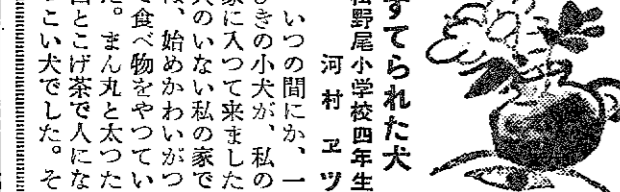 すてられた犬
松野尾小学校四年生
河村ヱツ
いつの間にか、一
ぴきの小犬が、私の
家に入つて来ました
犬のいない私の家で
は、始めかわいがつ
て食べ物をやつてい
た。まん丸と太つた
白とこげ茶で人にな
つこい犬でした。そ